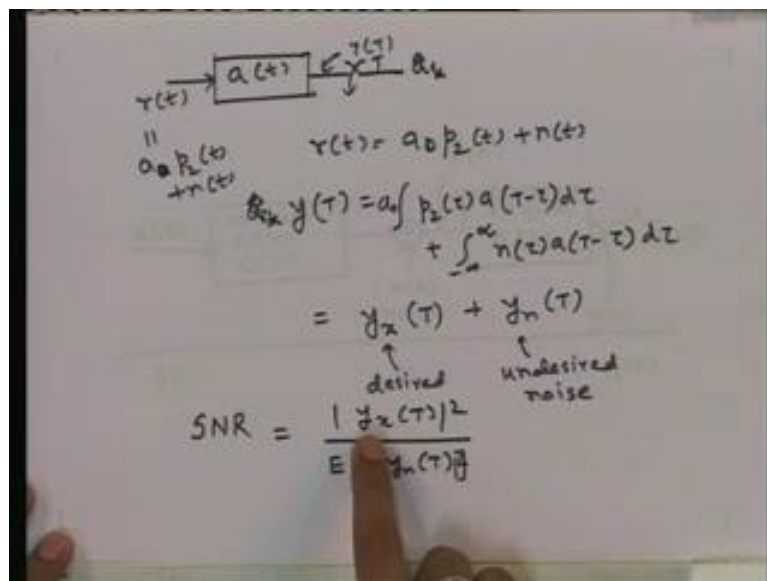 y(T)
r(t) a(t) T
||
a0 p2(t)
+n(t)
r(t) = a0 p2(t) + n(t)
y(T) = a0 ∫ p2(τ) a(T-τ) dτ
+ ∫-∞^∞ n(τ) a(T-τ) dτ
= yx(T) + yn(T)
↑ ↑
desired undesired
noise
SNR = |yx(T)|2
E yn(T)